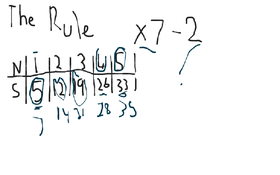 The Rule
x7-2
N | 1 | 2 | 3 | 4 | 5 |
S | 5 | 12 | 19 | 26 | 33 |
7 14 21 28 35
?